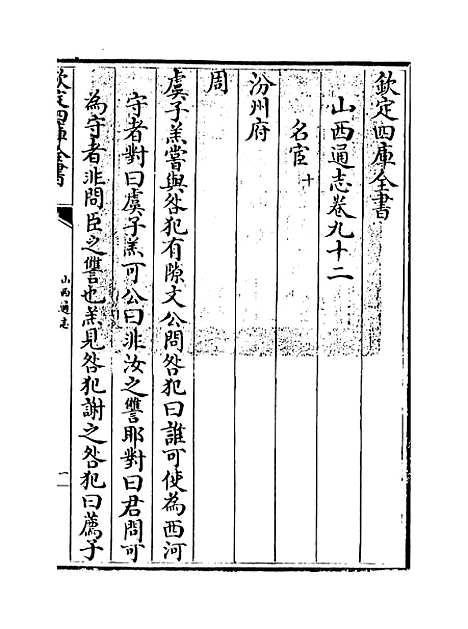 欽定四庫全書
山西通志卷九十二
名宦十
汾州府
周
虞子羔嘗與咎犯有隙文公問咎犯曰誰可使為西河
守者對曰虞子羔可公曰非汝之讐耶對曰君問可
為守者非問臣之讐也羔見咎犯謝之咎犯曰薦子
欽定四庫全書
山西通志
一